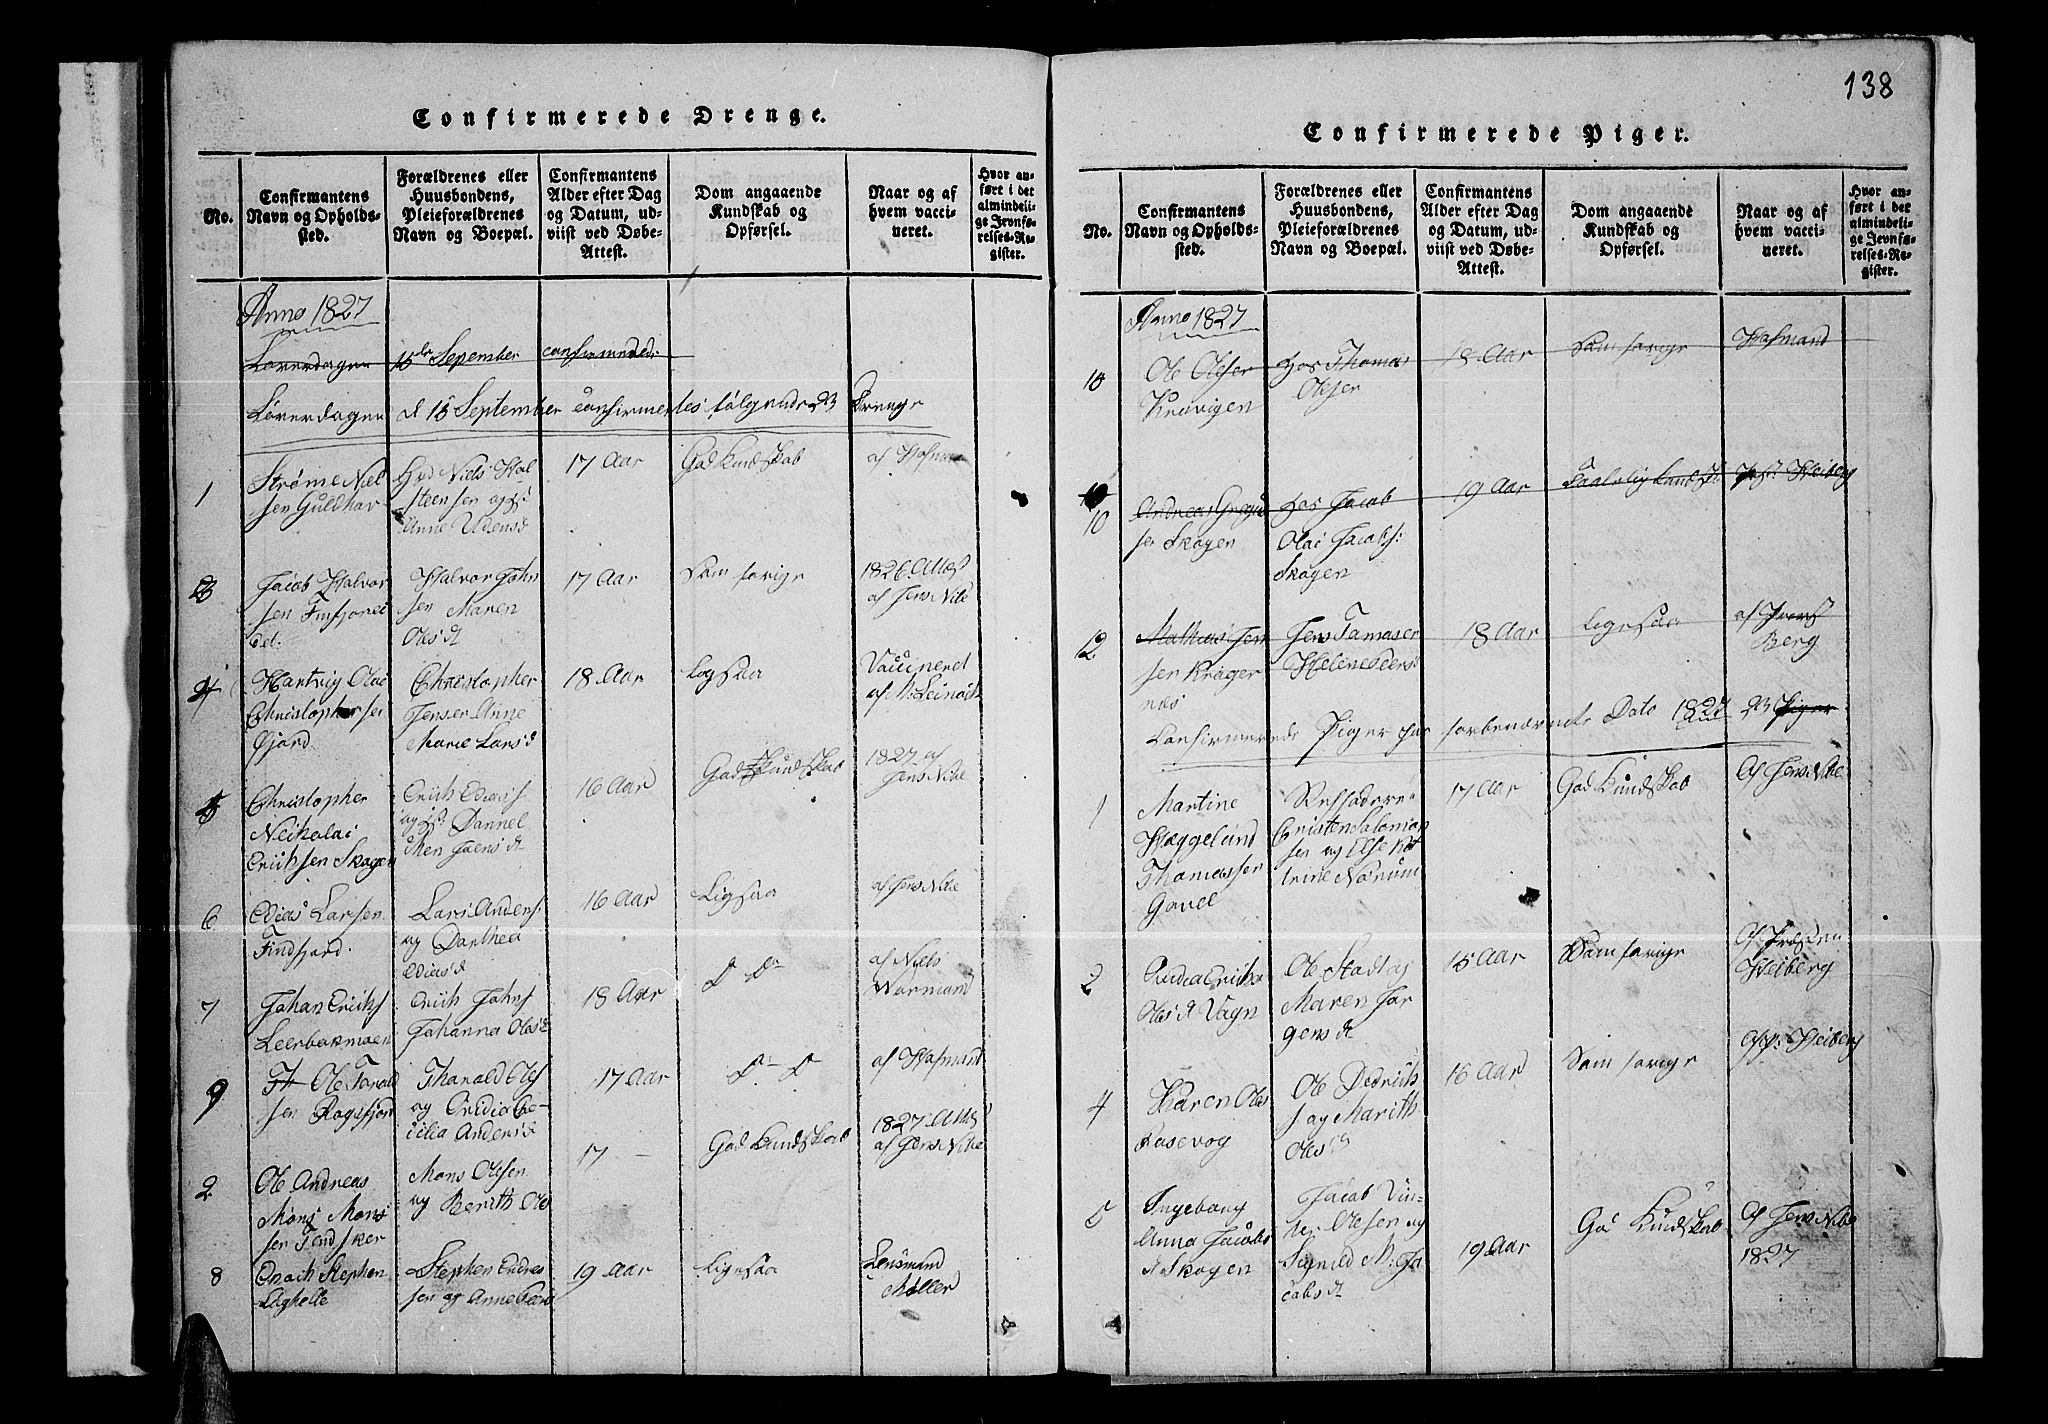 138
Confirmerede Drenge.
No.
Confirmantens
Navn og Opholds-
sted.
Forældrenes eller
Huusbondens,
Pleieforældrenes
Navn og Boepæl.
Confirmantens
Alder efter Dag
og Datum, ud-
viist ved Døbe-
Attest.
Dom angaaende
Kundskab og
Opførsel.
Naar og af
hvem vacci-
neret.
Hvor an-
ført i det
almindeli-
ge Jevnfø-
relses-Re-
gister.
Anno 1827
Løverdagen 15de Sepember confirmerede
Løverdagen d 15 September confirmertes følgende 23 Drenge
1
Strøme Niel
sen Guldhav
Niels Hol
steensen og
Anne
17 Aar
God Kundskab
af Hofmand
3
Jacob Halvor
sen Finfjorei
del.
Halvor John
sen Maren
Olesd
17 Aar
Som forige
1826 Attest
af Jens Nibe
4
Hartvig Olai
Christophersen
Fjord.
Christopher
Jensen Anne
Marie Larsd
18 Aar
Ligsaa
Vaccineret
af
5
Christopher
Neikolai
Erichsen Skogen
Erich Ediass
og
16 Aar
God Kundskab
1827 af
Jens Nibe
6
Edias Larsen
Findfjord.
Lars Anders.
og Dorthea
Ediasd
16 Aar
Ligsaa
af Jens Nibe
7
Johan Erichs
Leerbakmoen
Erich Johns
Johanna Olesd
18 Aar
D Do
af Niels
Normand
9
Ole Torald
sen Rogsfjord
Tharald Oles
og Eridia Ce-
cilia Andersd
17 Aar
D - D
af Hofmand
2
Ole Andreas
Mons Mons
sen
Mons Olesen
og Berith Ole
17 -
God Kundskab
1827 Attest
af Jens Nibe
8
Enoch Stephen
Laghelle
Stephen Endres
sen og Anne
19 Aar
Ligesaa
Lensmand
Møller
Confirmerede Piger.
No.
Confirmantens
Navn og Opholds-
sted.
Forældrenes eller
Huusbondens,
Pleieforældrenes
Navn og Boepæl.
Confirmantens
Alder efter Dag
og Datum, ud-
viist ved Døbe-
Attest.
Dom angaaende
Kundskab og
Opførsel.
Naar og af
hvem vacci-
neret.
Hvor an-
ført i det
almindeli-
ge Jevnfø-
relses-Re-
gister.
Anno 1827
10
Ole Olesen
Knavigen
hos Thomas
Olesen
18 Aar
Som forige
Hofmand
10
Andreas
sen Skogen
hos Jacob
Olai Jacobs:
Skogen
19 Aar
Taalelig Kundsk
Heiberg
12
Mathias Jen
sen Krager
næs
Jens Tamasen
Helene Peders
18 Aar
Ligesaa
af
Berg
Confirmerede Piger for forbenævnte Dato 1827 23 Piger
1
Martine
Hæggelund
Thomassen
Govel
Christen Salomon
sen og Else Kat
trine Norum
17 Aar
God Kundskab
Af Jens Nibe
2
Eridia Erika
Olesd Vagn
Ole Stadlog
Maren Jør
gensd
15 Aar
Som forige
Af Præsten
Heiberg
4
Karen Oles
Rosevog
Ole Didrich
s og Marith
Olesd
16 Aar
Som forige
Heiberg
5
Ingeborg
Anna Jacobs
d Skogen
Jacob Vin-
ter Olesen og
Signild M: Ja
cobsd
19 Aar
God Kundskab
Af Jens Nibe
1827